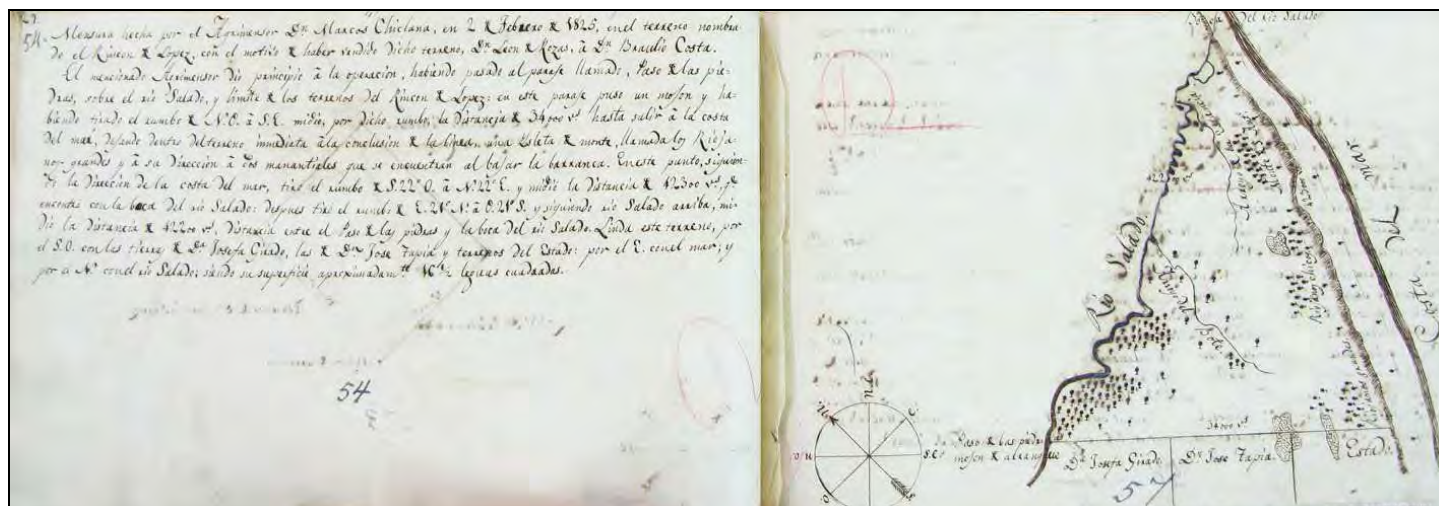 54.. Mensura hecha por el Agrimensor Dn. Marcos Chiclana, en 2 & Febrero & 1825, en el terreno nombra-
do el Rincon & Lopez, con el motivo & haber vendido dicho terreno, Dn. Leon & Rozas, à Dn. Braulio Costa.
El mencionado Agrimensor dio principio à la operacion, habiendo pasado al paraje llamado, Paso & las pie-
dras, sobre el rio Salado, y limite & los terrenos del Rincon & Lopez: en este paraje puso un mojon y ha-
biendo tirado el rumbo & N.O. à S.E. midio, por dicho rumbo, la distancia & 34000 vs. hasta salir à la costa
del mar, dejando dentro del terreno inmediata à la conclusion & la linea, una Isleta & monte, llamada los Rioja-
nos grandes y à su direccion à dos manantiales que se encuentran al bajar la barranca. En este punto, siguien-
do la direccion de la costa del mar, tiró el rumbo & S.22°O. à N.22°E. y midió la distancia & 12300 vs.
encontró con la boca del rio Salado: despues tiró el rumbo & E.21°N. à O.21°S. y siguiendo rio Salado arriba, mi-
dió la distancia & 42200 vs. distancia entre el Paso & las piedras y la boca del rio Salado. Linda este terreno, por
el S.O. con las tierras & Da. Josefa Girado, las & Dn. Jose Tapia y terrenos del Estado: por el E. con el mar; y
por el N. con el rio Salado; siendo su superficie aproximadamte. 16 1/2 leguas cuadradas.
54
Boca del rio Salado
Costa del Mar
Rio Salado
Riojanos chicos
34000 vs.
Paso & las piedras
mojon & arranque
Da. Josefa Girado
Dn. Jose Tapia
Estado
N.
E.
S.E.
S.
O.